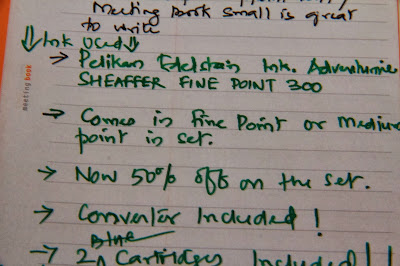 Meeting Book small is great
to write
Ink used
→ Pelikan Edelstein Ink. Adventurine
SHEAFFER FINE POINT 300
→ Comes in Fine Point or Medium
point in set.
→ Now 50% off on the set.
→ Converter Included!
Blue
→ 2 Cartridges Included!!
meeting book